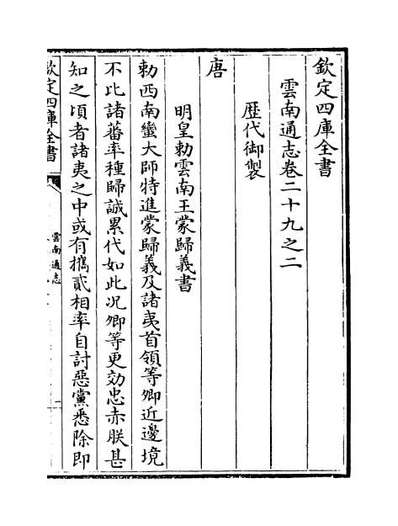 欽定四庫全書
雲南通志卷二十九之二
歴代御製
唐
明皇勅雲南王蒙歸義書
勅西南蠻大帥特進蒙歸義及諸夷首領等卿近邊境
不比諸蕃率種歸誠累代如此况卿等更効忠赤朕甚
知之頃者諸夷之中或有攜貳相率自討惡黨悉除即
欽定四庫全書
雲南通志